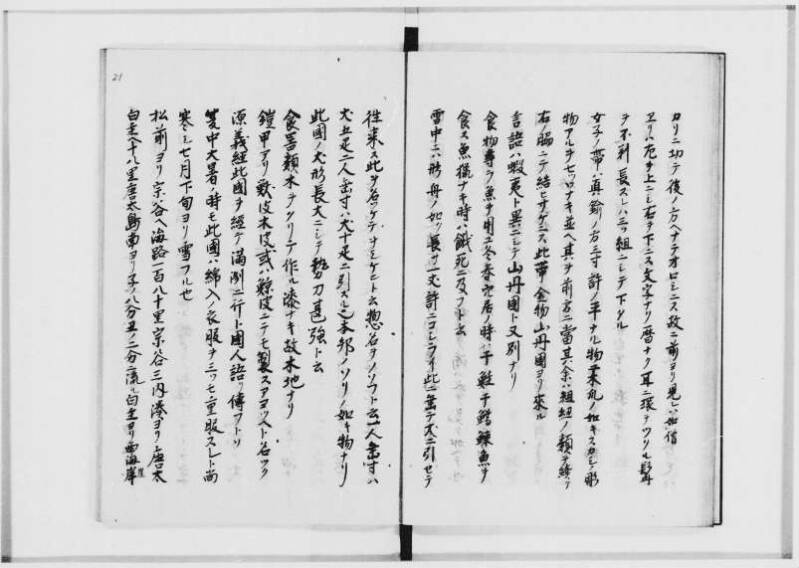 カリニ切テ後ノ方ヘナテオロシニス故ニ前ヨリ見レハ如僧
ヱリハ左ヲ上ニシ右ヲ下ニス文字ナク暦ナク耳ニ環ヲツケル髭
ヲ不剃長スレハ三ツ組ニシテ下クル
女子ノ帯ハ真鍮ノ方三寸許ノ平ナル物ヱ
物アルヲ七ツ八ナキ並ヘ其ヲ前方ニ當其余ハ組紐ノ類ヲ
右ノ脇ニテ結ヒサケニス此帯ノ金物山丹國ヨリ來ル
言語ハ蝦夷ト異ニシテ山丹國ト又別ナリ
食物専ラ魚ヲ用ユ冬春穴居ノ時ハ干鮭干鱈鰊魚ヲ
食ス魚猟ナキ時ハ餓死ニ及フト云
雪中ニハ形舟ノ如ク長サ一丈許ニコシラヱ此ニ乗テ犬ニ引セテ
往来ス此ヲ名ツケテ ト云惣名ヲノソフト云一人乗ハ
犬五疋二人乗ハ犬十疋ニ引スル也本邦ノソリノ如キ物ナリ
此國ノ犬形長大ニシテ勢力甚強ト云
食器類木ヲクリテ作ル漆ナキ故木地ナリ
鎧甲アリ獣皮木皮或ハ鯨皮ニテモ製スアヨストト名ツク
源義経此國ヲ経テ満洲ニ行ト國人語リ傳フトソ
夏中大暑ノ時モ此國ハ綿入ノ衣服ヲ三ツモ重服スレト尚
寒シ七月下旬ヨリ雪フル也
松前ヨリ宗谷ヘ海路一百八十里宗谷三内湊ヨリ唐太
白主ヘ十八里唐太島南ヨリ子ノ八分丑ノ二分ニ流ル白主ヨリ西海岸
21